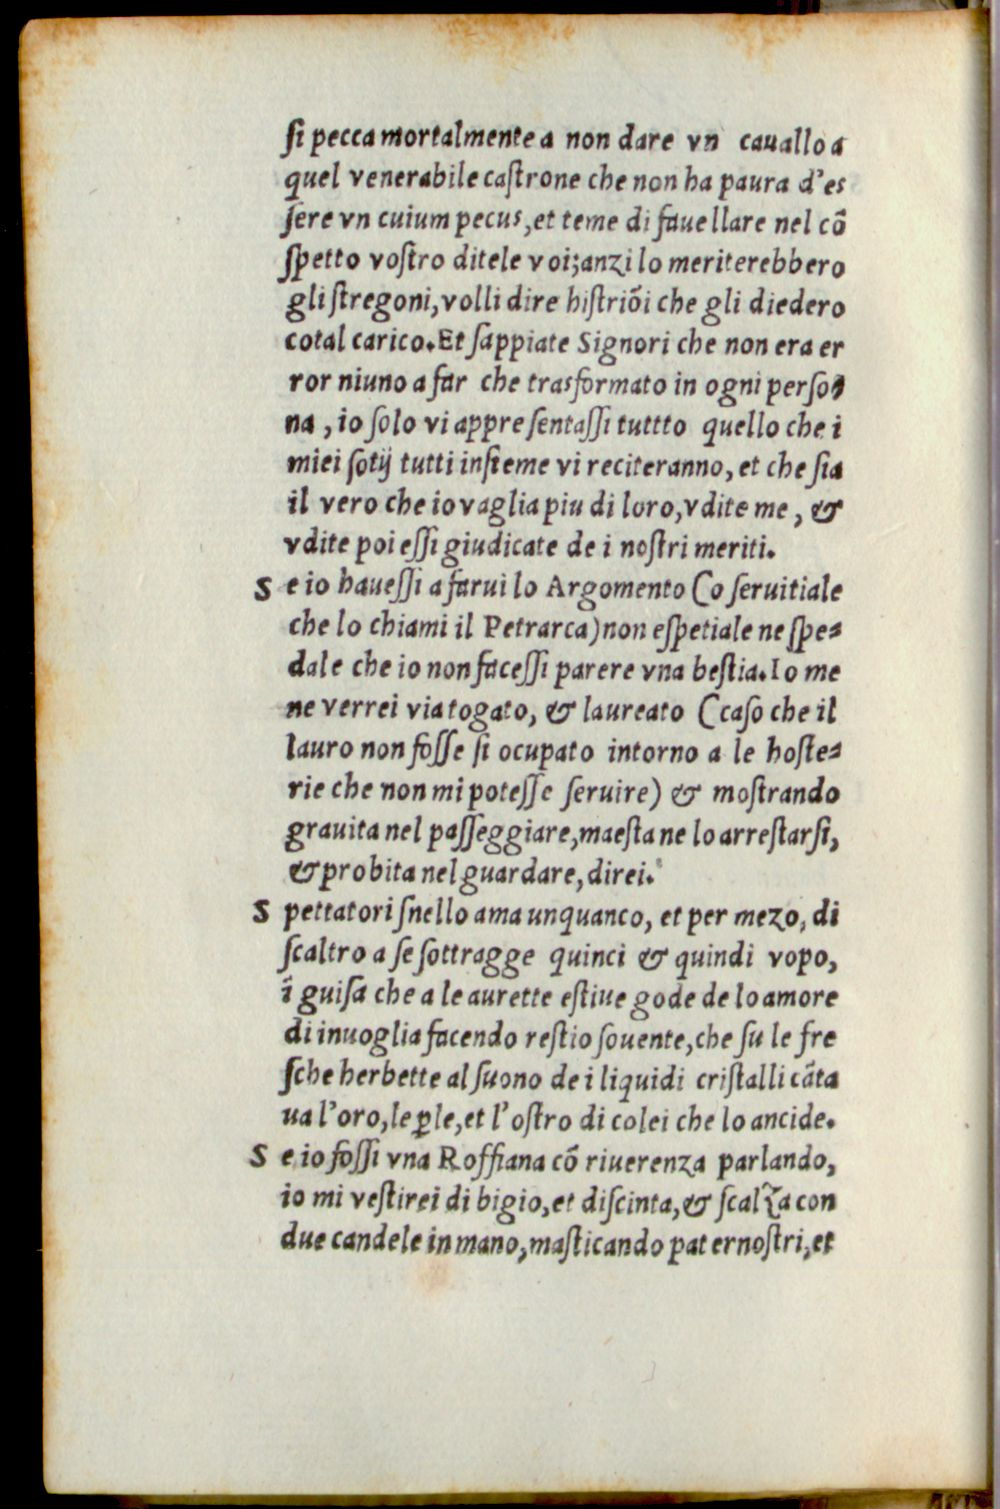 ſi pecca mortalmente a non dare vn cauallo a
quel venerabile caſtrone che non ha paura d'eſ
ſere vn cuium pecus, et teme di fauellare nel cõ
ſpetto voſtro ditele voi; anzi lo meriterebbero
gli ſtregoni, volli dire hiſtriõi che gli diedero
cotal carico. Et ſappiate Signori che non era er
ror niuno a far che trasformato in ogni perſo-
na, io ſolo vi appreſentaſſi tuttto quello che i
miei ſotij tutti inſieme vi reciteranno, et che ſia
il vero che io vaglia piu di loro, vdite me, &
vdite poi eſſi giudicate de i noſtri meriti.
S e io haueſſi a farui lo Argomento (o ſeruitiale
che lo chiami il Petrarca) non eſpetiale ne ſpe-
dale che io non faceſſi parere vna beſtia. Io me
ne verrei via togato, & laureato (caſo che il
lauro non foſſe ſi ocupato intorno a le hoſte-
rie che non mi poteſſe ſeruire) & moſtrando
grauita nel paſſeggiare, maeſta ne lo arreſtarſi,
& probita nel guardare, direi.
S pettatori ſnello ama unquanco, et per mezo, di
ſcaltro a ſe ſottragge quinci & quindi vopo,
ĩ guiſa che a le aurette eſtiue gode de lo amore
di inuoglia facendo reſtio ſouente, che ſu le fre
ſche herbette al ſuono de i liquidi criſtalli cãta
ua l'oro, le ꝑle, et l'oſtro di colei che lo ancide.
S e io foſſi vna Roffiana cõ riuerenza parlando,
io mi veſtirei di bigio, et diſcinta, & ſcalza con
due candele in mano, maſticando paternoſtri, et